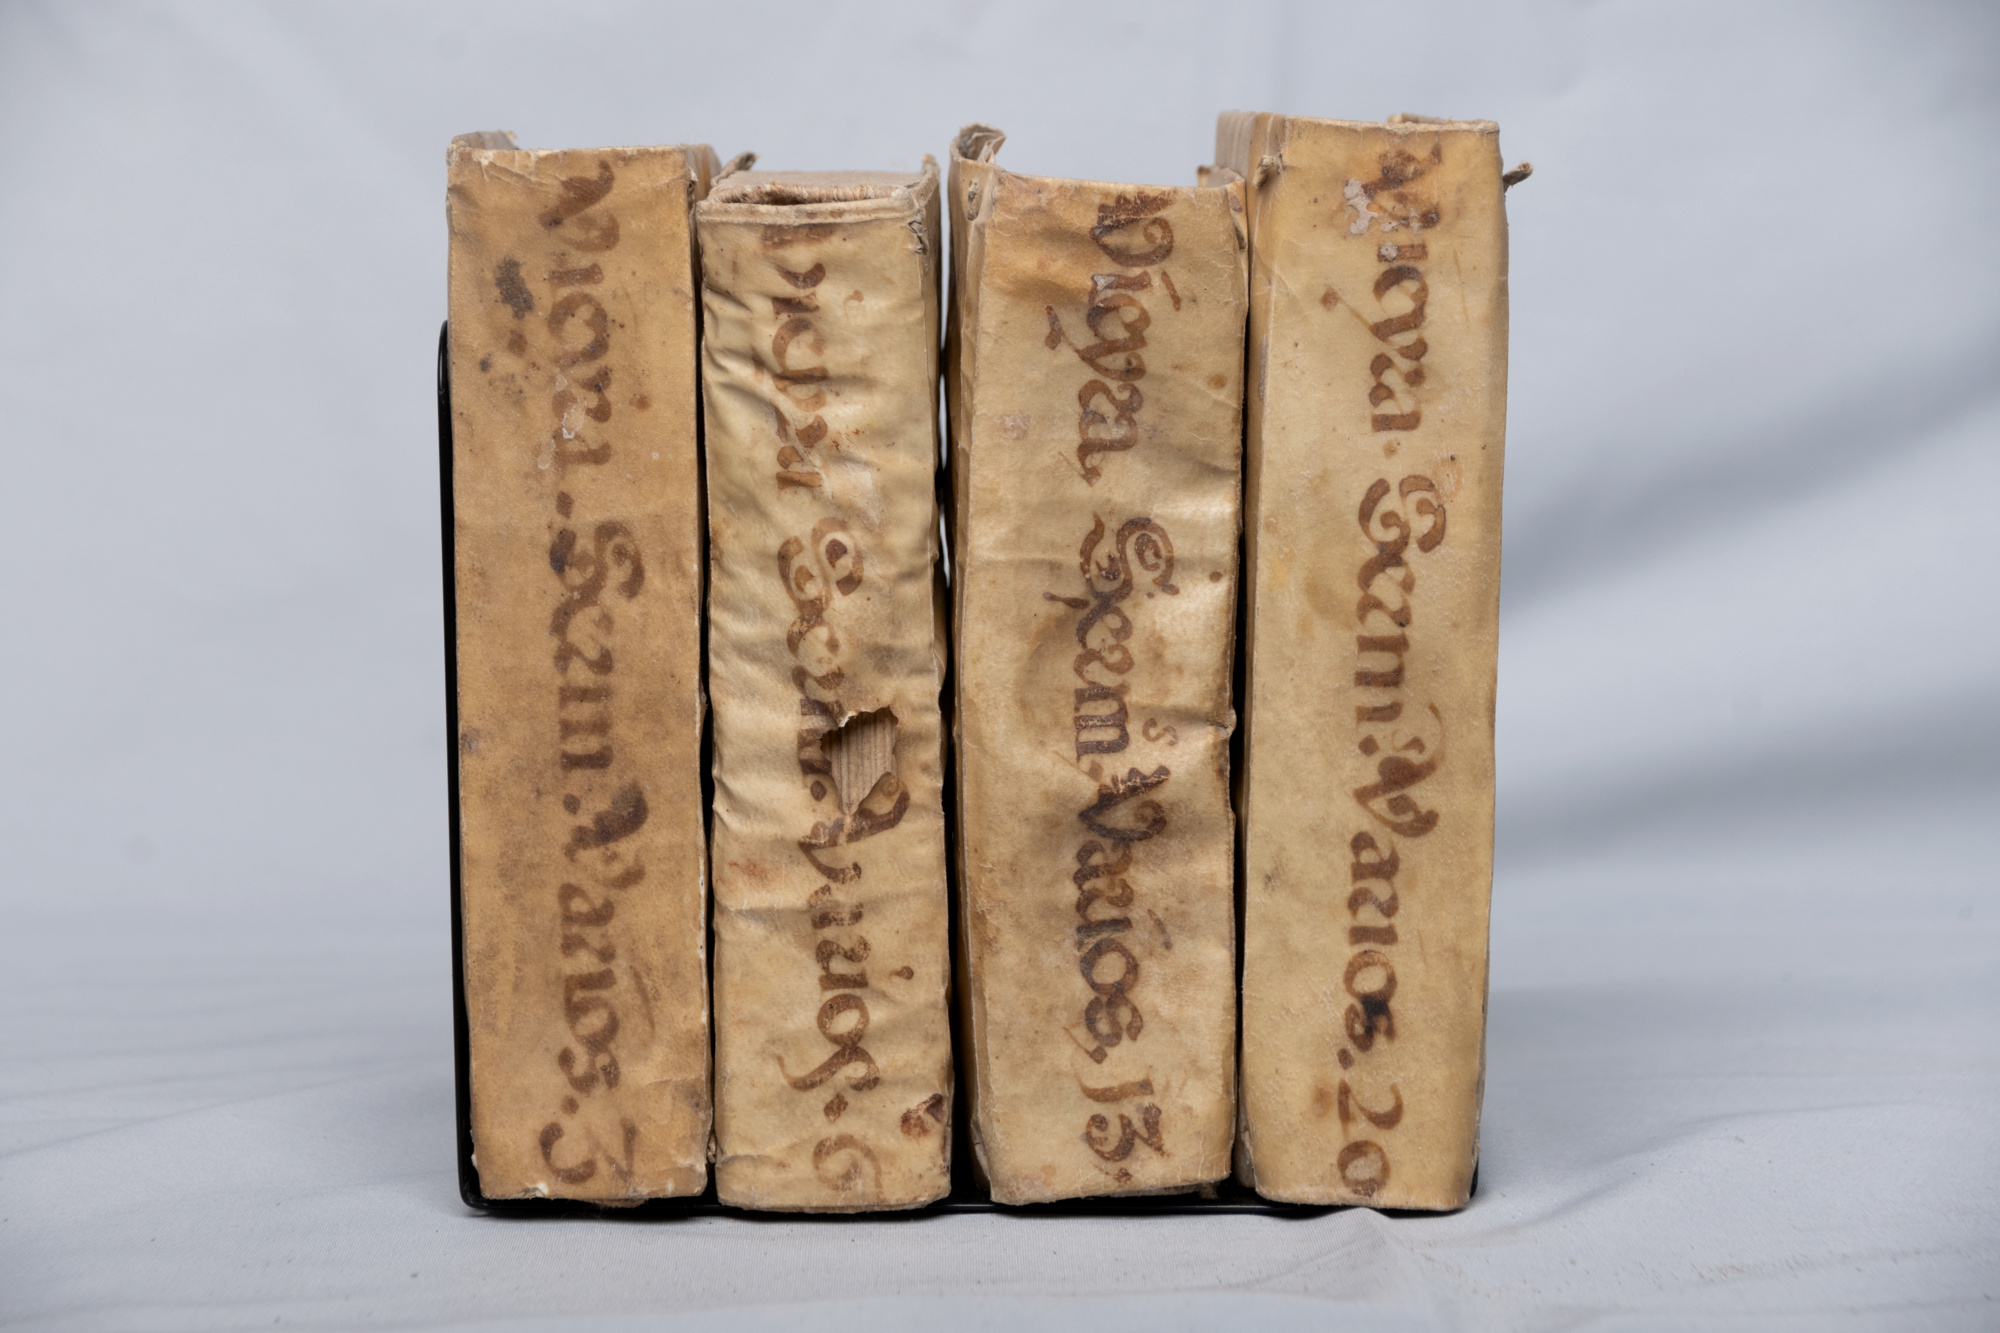 Vieyra. Serm. Varios. 3
Vieyra Serm. Varios. 6
Vieyra, Serm.s Varios, 13.
Vieyra. Serm. Varios. 20